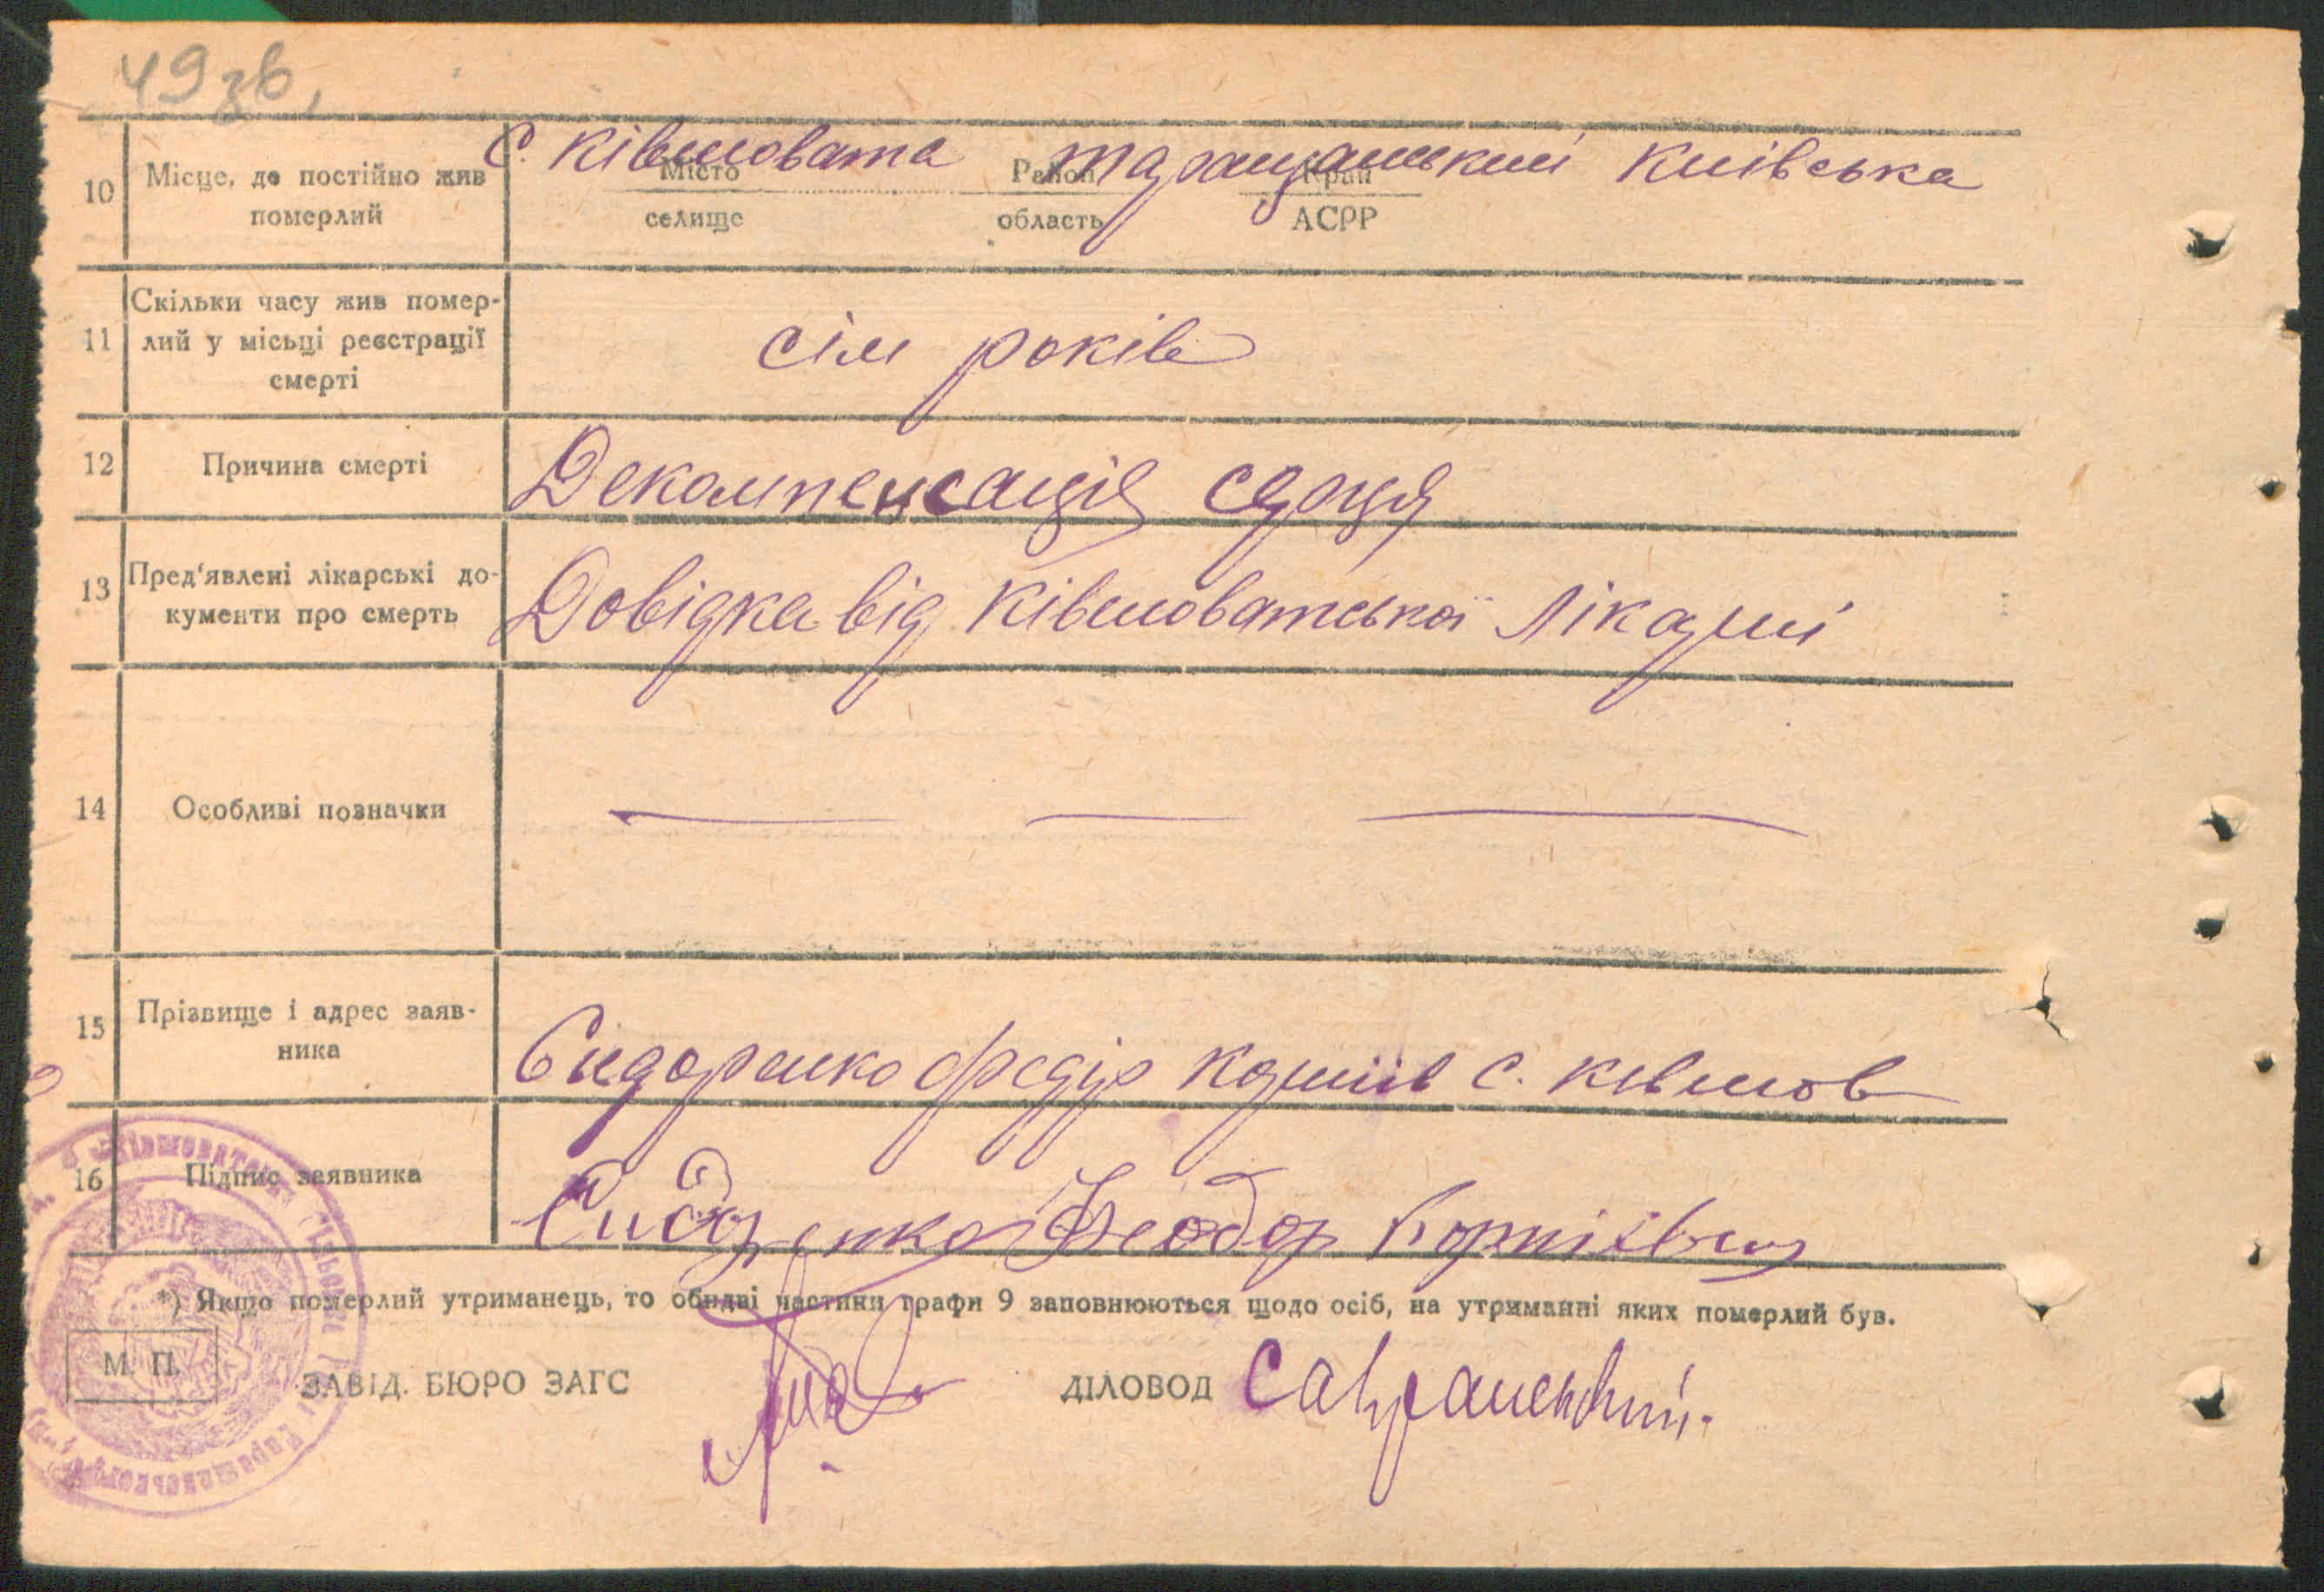 49зв,
10 Місце, де постійно жив померлий
с. Ківшовата таращанський Київська
Місто Район Край
селище область АСРР
11 Скільки часу жив помер-
лий у місьці реєстрації
смерті
сім років
12 Причина смерті
Декомпенсація сердця
13 Пред'явлені лікарські до-
кументи про смерть
Довідка від Ківшоватської лікарні
14 Особливі позначки
15 Прізвище і адрес заяв-
ника
Сидоренко Федір Корніїв с. Ківшов
16 Підпис заявника
Сидоренко Феодор Корніевич
*) Якщо померлий утриманець, то обидві частини графи 9 заповнюються щодо осіб, на утриманні яких померлий був.
М. П.
ЗАВІД. БЮРО ЗАГС
ДІЛОВОД